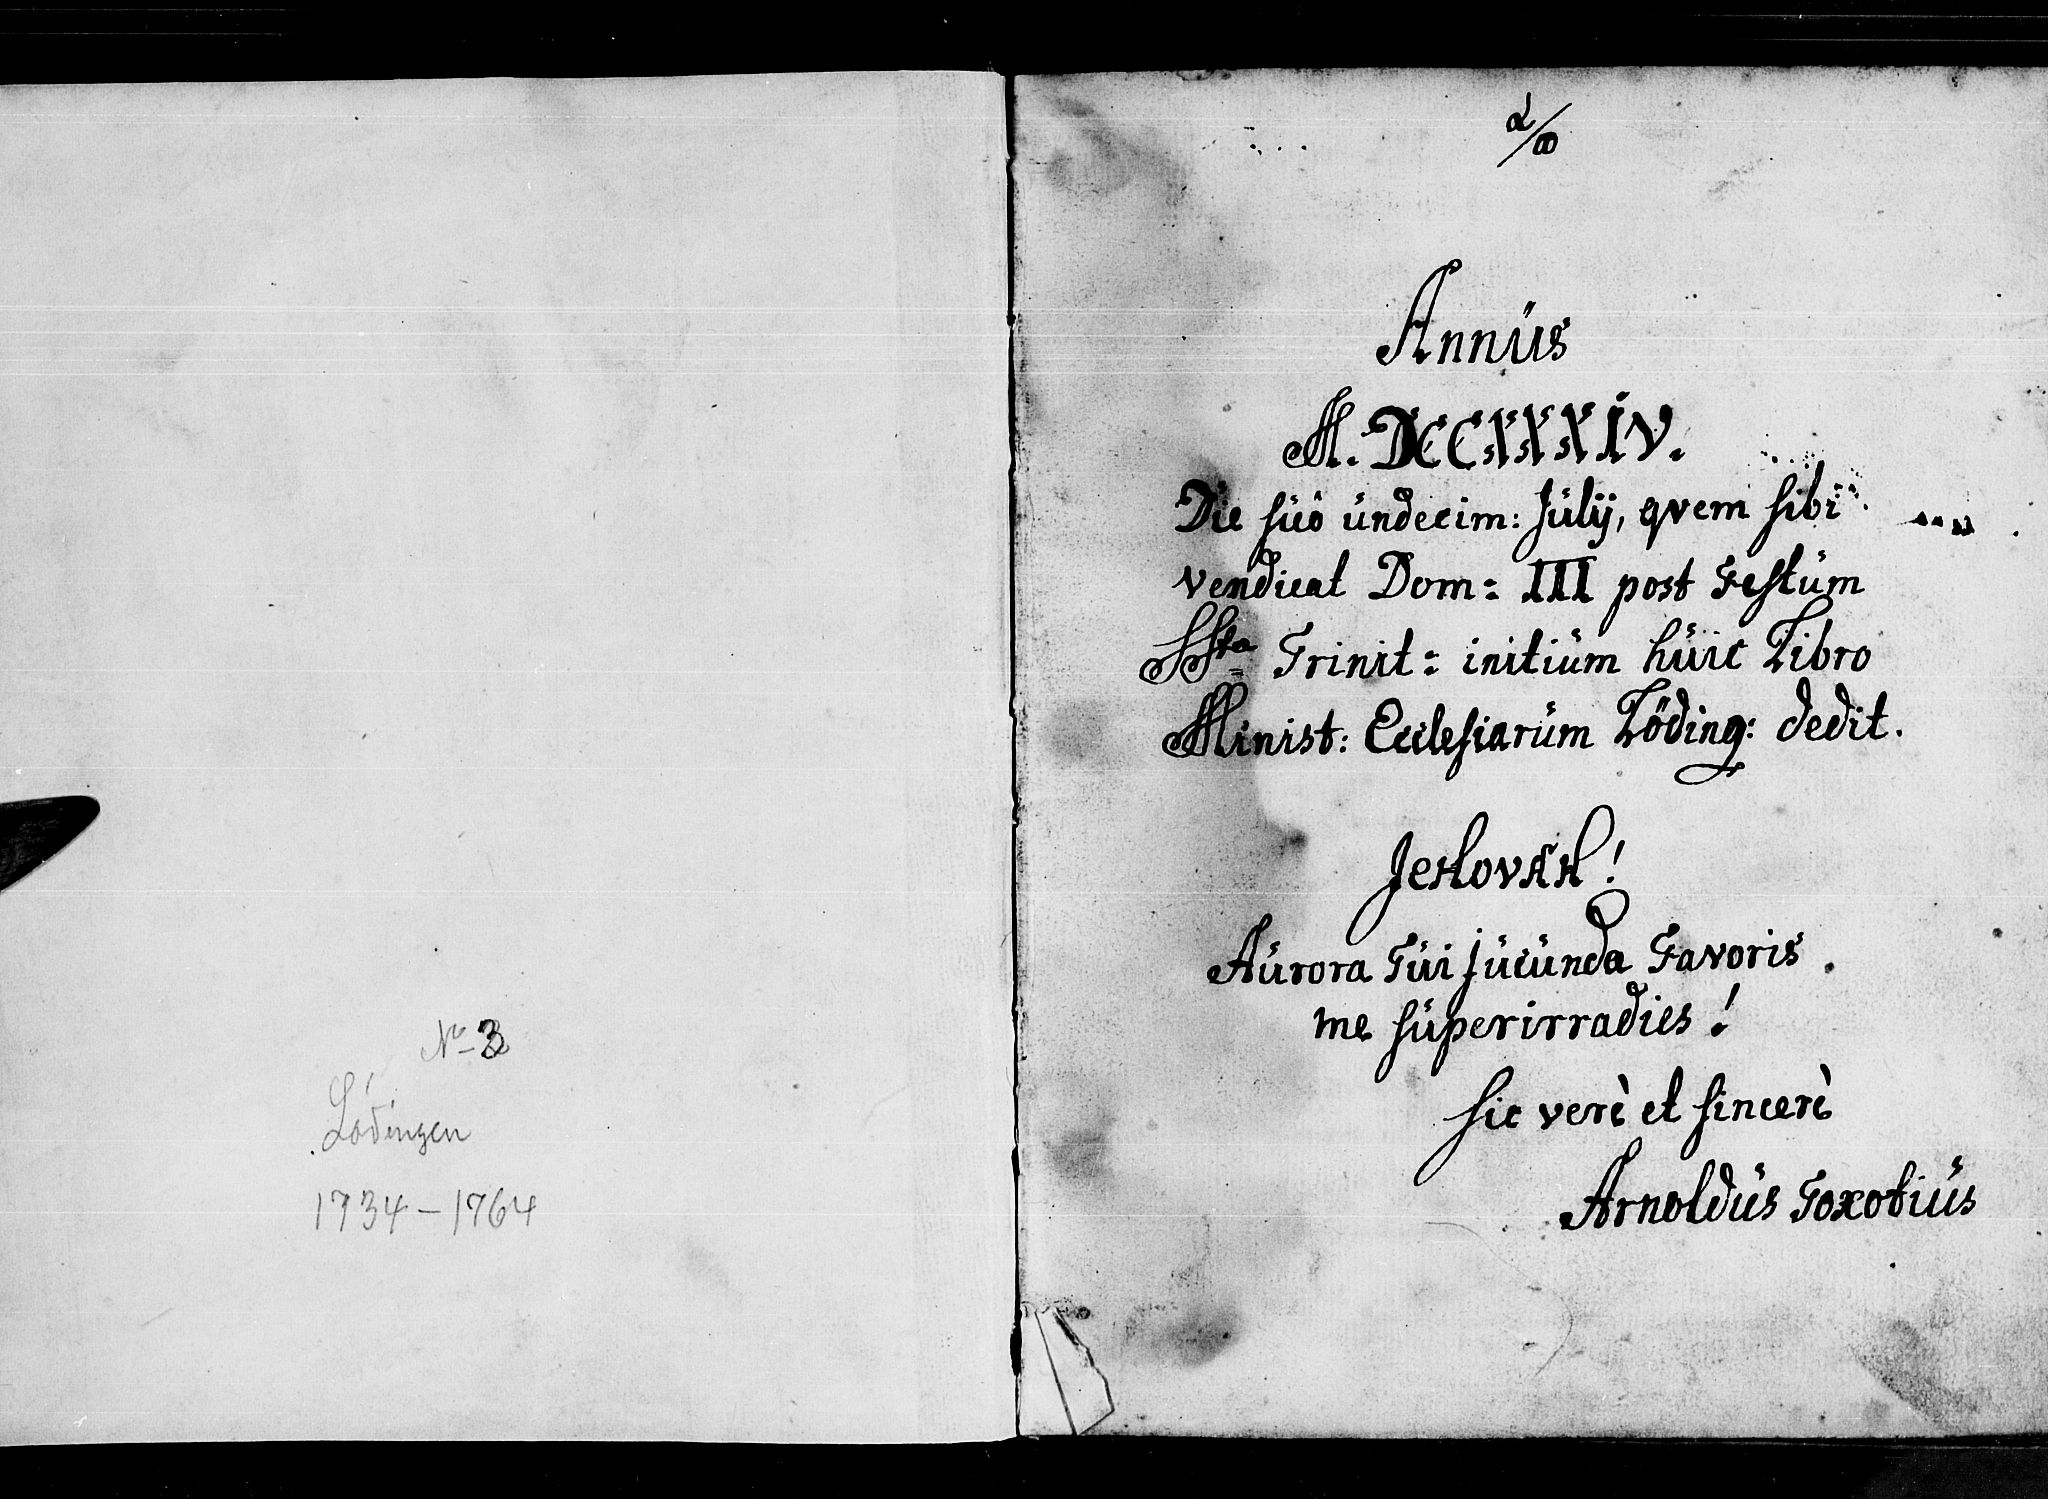 No 3
Lödingen
1734 - 1764
α/ω
Annüs
M.DCCXXXIV.
Die süô ündecim: Jülij, qvem sibi
vendicat Dom: III post Festüm
SSta Trinit: initiüm hüic Libro
Minist: Ecclesiarüm Löding: dedit.
JeHovAH!
Aürora Tüi jücünda Favoris
me süperirradies!
Sic verè et sincerè
Arnoldüs Toxotiüs